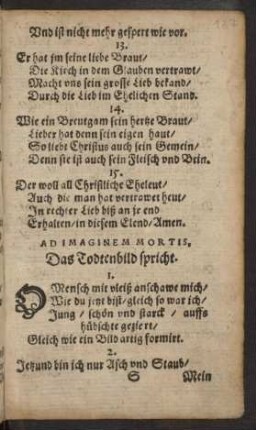 Vnd ist nicht mehr gespert wie vor.
13.
Er hat jm seine liebe Braut/
Die Kirch in dem Glauben vertrawt/
Macht vns sein grosse Lieb bekand/
Durch die Lieb im Ehelichen Stand.
14.
Wie ein Breutgam sein hertze Braut/
Lieber hat denn sein eigen haut/
So liebt Christus auch sein Gemein/
Denn sie ist auch sein Fleisch vnd Bein.
15.
Der woll all Christliche Eheleut/
Auch die man hat vertrawet heut/
In rechter Lieb biß an jr end
Erhalten/ in diesem Elend/ Amen.
AD IMAGINEM MORTIS.
Das Todtenbild spricht.
1.
O Mensch mit vleiß anschawe mich/
Wie du jtzt bist/ gleich so war ich/
Jung/ schön vnd starck/ auffs
hübschte geziert/
Gleich wie ein Bild artig formirt.
2.
Jetzund bin ich nur Asch vnd Staub/
S Mein